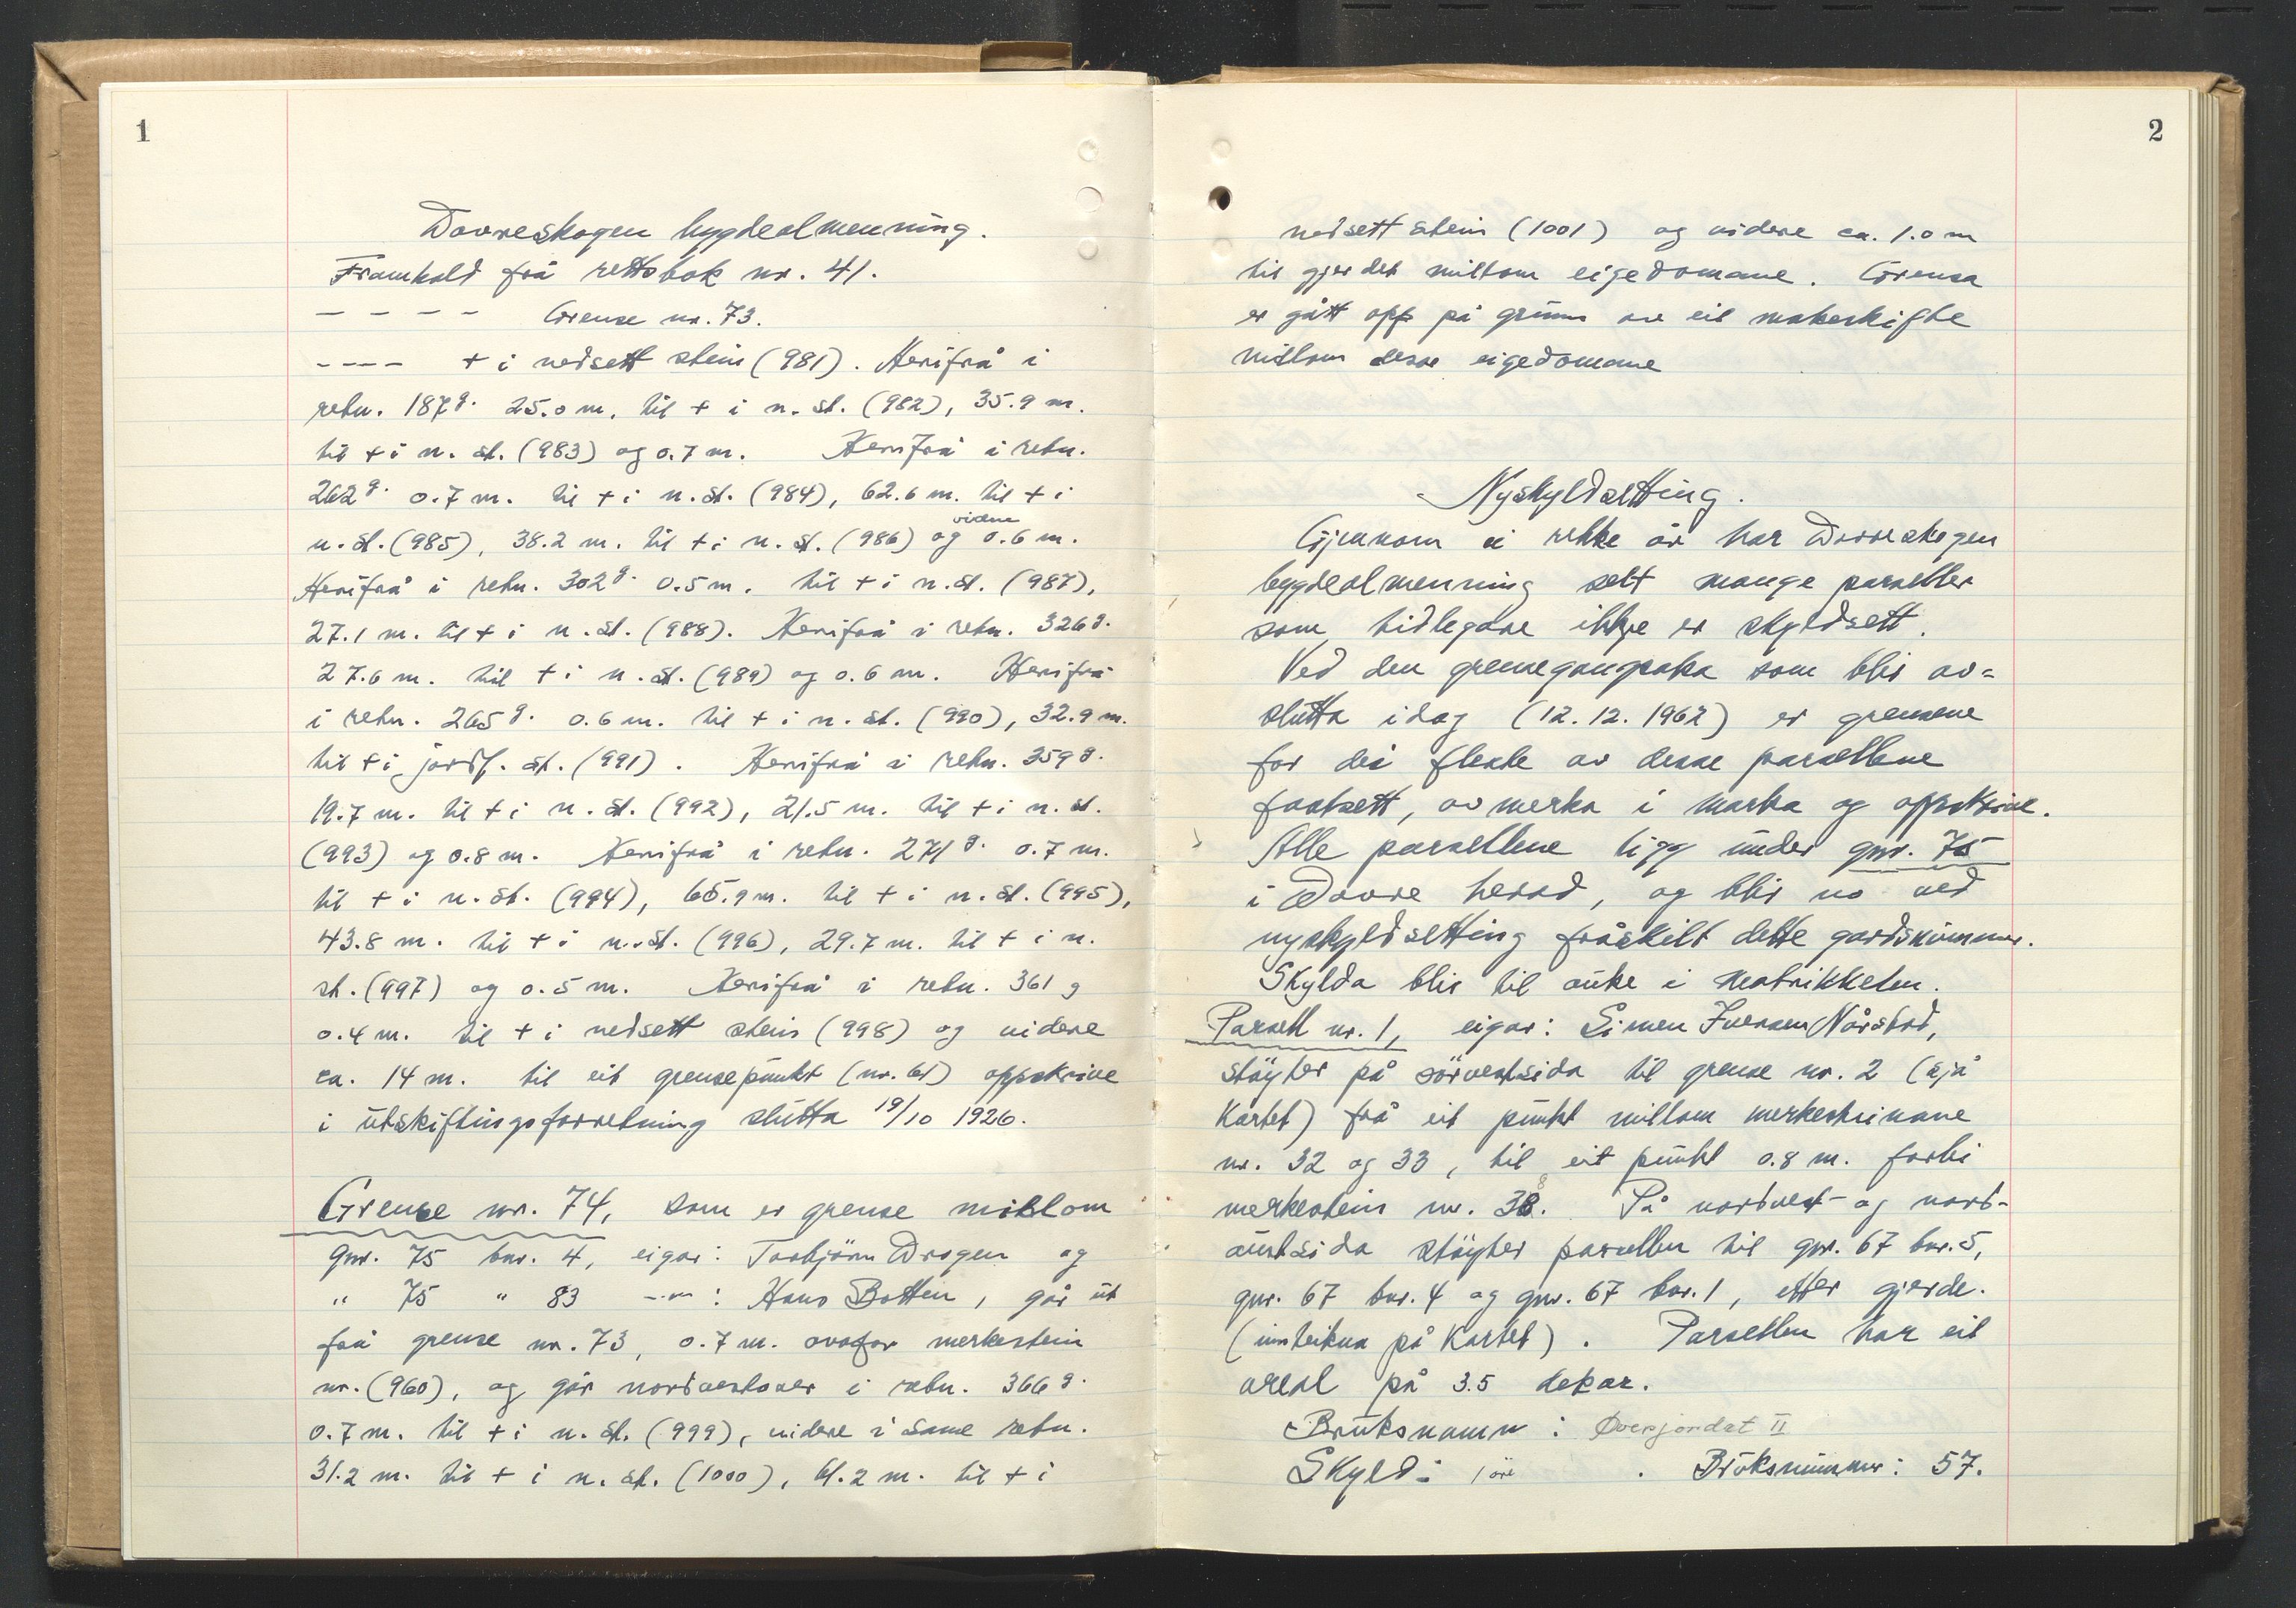 1
Dovreskogen bygdealmenning.
Framhald frå rettsbok nr. 41.
- - - - Grense nr. 73.
---- + i nedsett stein (981). Herifrå i
retn. 187 g. 25.0 m. til + i n. st. (982), 35.9 m.
til + i n. st. (983) og 0.7 m. Herifrå i retn.
262 g. 0.7 m. til + i n. st. (984), 62.6 m. til + i
n. st. (985), 38.2 m. til + i n. st. (986) og vidare 0.6 m.
Herifrå i retn. 302 g. 0.5 m. til + i n. st. (987),
27.1 m. til + i n. st. (988). Herifrå i retn. 326 g.
27.6 m. til + i n. st. (989) og 0.6 m. Herifrå
i retn. 265 g. 0.6 m. til + i n. st. (990), 32.9 m.
til + i jordf. st. (991). Herifrå i retn. 359 g.
19.7 m. til + i n. st. (992), 21.5 m. til + i n. st.
(993) og 0.8 m. Herifrå i retn. 271 g. 0.7 m.
til + i n. st. (994), 65.9 m. til + i n. st. (995),
43.8 m. til + i n. st. (996), 29.7 m. til + i n.
st. (997) og 0.5 m. Herifrå i retn. 361 g
0.4 m. til + i nedsett stein (998) og vidare
ca. 14 m. til eit grensepunkt (nr. 61) oppskrive
i utskiftingsforretning slutta 19/10 1926.
Grense nr. 74, som er grense millom
gnr. 75 bnr. 4, eigar: Torbjörn Drogen og
" 75 " 83 -"- : Hans Botten, går ut
frå grense nr. 73, 0.7 m. ovafor merkestein
nr. (960), og går nordvestover i retn. 366 g.
0.7 m. til + i n. st. (999), vidare i same retn.
31.2 m. til + i n. st. (1000), 61.2 m. til + i
2
nedsett stein (1001) og vidare ca. 1.0 m
til gjerdet millom eigedomane. Grensa
er gått opp på grunn av eit makeskifte
millom desse eigedomane
Nyskyldsetting.
Gjennom ei rekke år har Dovreskogen
bygdealmenning selt mange parseller
som tidlegare ikkje er skyldsett.
Ved den grensegangsaka som blir av=
slutta idag (12.12.1962) er grensene
for dei fleste av desse parsellene
fastsett, avmerka i marka og oppskrive.
Alle parsellene ligg under gnr. 75
i Dovre herad, og blir no ved
nyskyldsetting fråskilt dette gardsnummer.
Skylda blir til auke i matrikkelen.
Parsell nr. 1, eigar: Simen Iversen Nårstad,
støyter på sörvestsida til grense nr. 2 (sjå
Kartet) frå eit punkt millom merkesteinane
nr. 32 og 33, til eit punkt 0.8 m. forbi
merkestein nr. 38. På nordvest- og nord-
austsida støyter parsellen til gnr. 67 bnr. 5,
gnr. 67 bnr. 4 og gnr. 67 bnr. 1, etter gjerde.
(innteikna på Kartet). Parsellen har eit
areal på 3.5 dekar.
Bruksnamn: Øverjordet II
Skyld: 1 øre . Bruksnummer: 57.